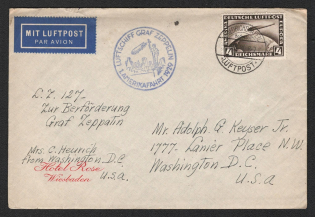 MIT LUFTPOST
PAR AVION
LUFTSCHIFF GRAF ZEPPELIN
DEUTSCHE LUFTPOST
4 4
REICHSMARK
LUFTPOST
L.Z. 127.
Zur Berförderung
Graf Zeppelin
Mr. Adolph G. Keyser Jr.
1777. Lanier Place N.W.
Washington D.C.
U.S.A
Mrs. C. Heurich
from Washington D.C
U.S.A.
Hotel Rose
Wiesbaden